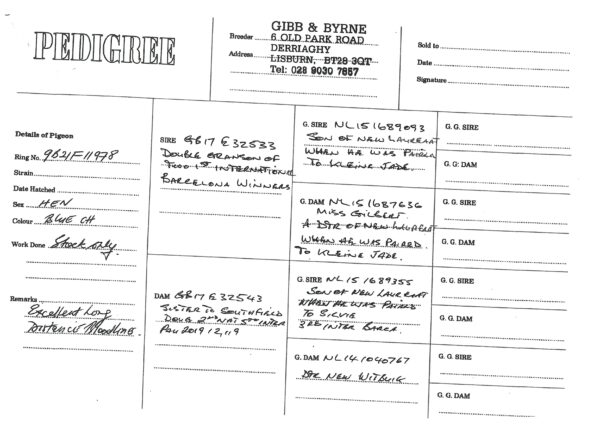 PEDIGREE
GIBB & BYRNE
Breeder 6 OLD PARK ROAD
DERRIAGHY
Address LISBURN, BT28 3QT
Tel: 028 9030 7857
Sold to
Date
Signature
Details of Pigeon
Ring No. GB21F11978
Strain
Date Hatched
Sex HEN
Colour BLUE CH
Work Done Stock only
Remarks
Excellent Long
Distance Bloodline.
SIRE GB17 E32533
DOUBLE GRANSON OF
TWO 1ST INTERNATIONL
BARCELONA WINNERS
DAM GB17 E32543
SISTER TO SOUTHFIELD
DOUG 2ND NAT 5TH INTER
PAU 2019
G. SIRE NL151689093
SON OF NEW LAUREAAT
WHEN HE WAS PAIRED
TO KLEINE JADE.
G. DAM NL151687636
MISS GILBERT.
A DTR OF NEW LAUREAAT
WHEN HE WAS PAIRED.
TO KLEINE JADE.
G. SIRE NL151689355
SON OF NEW LAUREAAT
WHEN HE WAS PAIRED
TO SILVIE
3RD INTER BARCA.
G. DAM NL14.1040767
DTR NEW WITBUIK
G. G. SIRE
G. G. DAM
G. G. SIRE
G. G. DAM
G. G. SIRE
G. G. DAM
G. G. SIRE
G. G. DAM